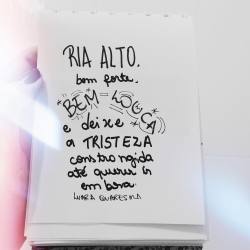 RIA ALTO.
bem forte.
BEM-LOUCA
e deixe
a TRISTEZA
constrangida
até querer ir
embora.
LUARA QUARESMA